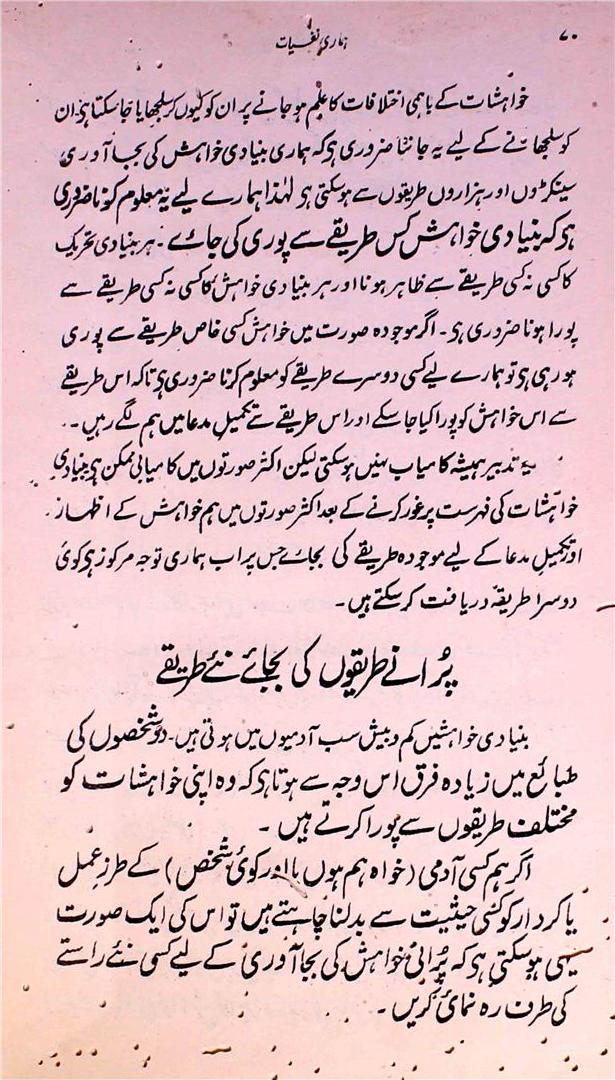 ۷۰
ہماری نفسیات
خواہشات کے باہمی اختلافات کا علم ہو جانے پر ان کو کیوں کر سلجھایا جا سکتا ہی ان
کو سلجھانے کے لیے یہ جاننا ضروری ہی کہ ہماری بنیادی خواہش کی بجا آوری
سینکڑوں اور ہزاروں طریقوں سے ہو سکتی ہی لہٰذا ہمارے لیے یہ معلوم کرنا ضروری
ہی کہ بنیادی خواہش کس طریقے سے پوری کی جائے۔ ہر بنیادی تحریک
کا کسی نہ کسی طریقے سے ظاہر ہونا اور ہر بنیادی خواہش کا کسی نہ کسی طریقے سے
پورا ہونا ضروری ہی۔ اگر موجودہ صورت میں خواہش کسی خاص طریقے سے پوری
ہو رہی ہی تو ہمارے لیے کسی دوسرے طریقے کو معلوم کرنا ضروری ہی تاکہ اس طریقے
سے اس خواہش کو پورا کیا جا سکے اور اس طریقے سے تکمیلِ مدعا میں ہم لگے رہیں۔
یہ تدبیر ہمیشہ کامیاب نہیں ہو سکتی لیکن اکثر صورتوں میں کامیابی ممکن ہی بنیادی
خواہشات کی فہرست پر غور کرنے کے بعد اکثر صورتوں میں ہم خواہش کے اظہار
اور تکمیلِ مدعا کے لیے موجودہ طریقے کی بجائے جس پر اب ہماری توجہ مرکوز ہی کوئی
دوسرا طریقہ دریافت کر سکتے ہیں۔
پُرانے طریقوں کی بجائے نئے طریقے
بنیادی خواہشیں کم و بیش سب آدمیوں میں ہوتی ہیں۔ دو شخصوں کی
طبائع میں زیادہ فرق اس وجہ سے ہوتا ہی کہ وہ اپنی خواہشات کو
مختلف طریقوں سے پورا کرتے ہیں۔
اگر ہم کسی آدمی (خواہ ہم ہوں یا اور کوئی شخص) کے طرزِ عمل
یا کردار کو کسی حیثیت سے بدلنا چاہتے ہیں تو اس کی ایک صورت
یہی ہو سکتی ہی کہ پُرانی خواہش کی بجا آوری کے لیے کسی نئے راستے
کی طرف رہ نمائی کریں۔